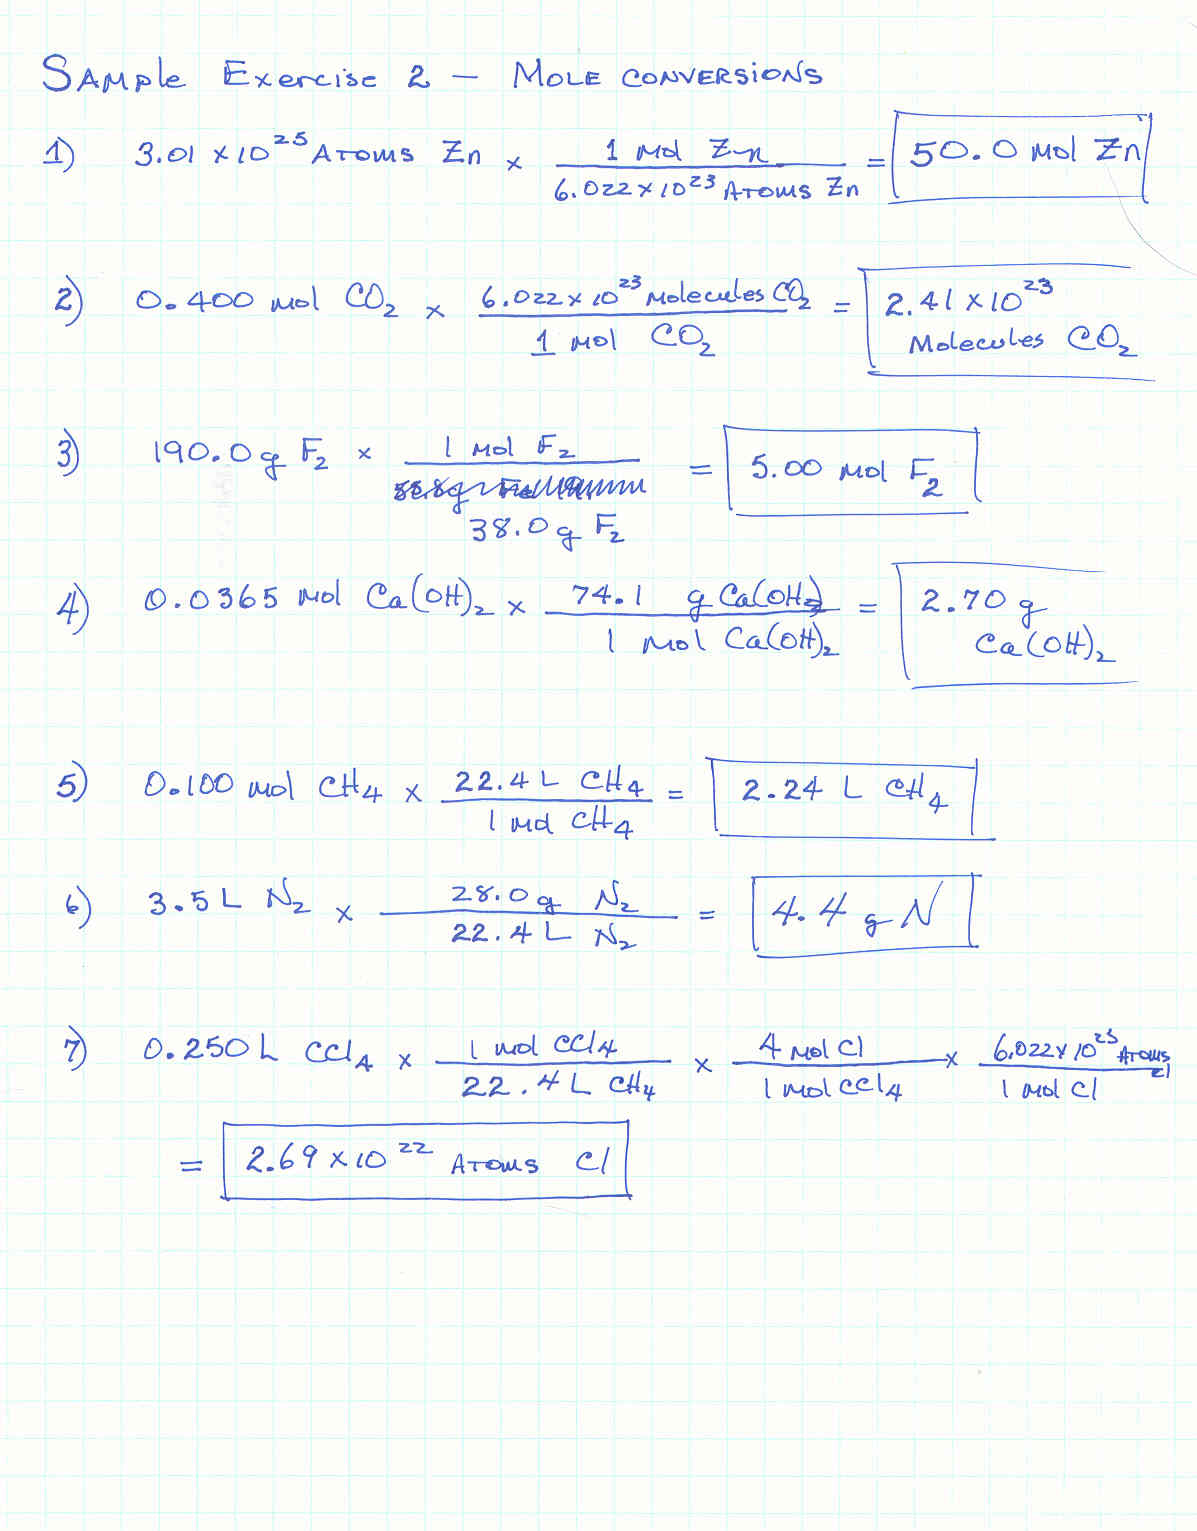 SAMPLE EXERCISE 2 — MOLE CONVERSIONS
1) 3.01 × 10^25 ATOMS Zn × 1 mol Zn / 6.022 × 10^23 ATOMS Zn = 50.0 mol Zn
2) 0.400 mol CO₂ × 6.022 × 10^23 Molecules CO₂ / 1 mol CO₂ = 2.41 × 10^23 Molecules CO₂
3) 190.0 g F₂ × 1 mol F₂ / 38.0 g F₂ = 5.00 mol F₂
4) 0.0365 mol Ca(OH)₂ × 74.1 g Ca(OH)₂ / 1 mol Ca(OH)₂ = 2.70 g Ca(OH)₂
5) 0.100 mol CH₄ × 22.4 L CH₄ / 1 mol CH₄ = 2.24 L CH₄
6) 3.5 L N₂ × 28.0 g N₂ / 22.4 L N₂ = 4.4 g N
7) 0.250 L CCl₄ × 1 mol CCl₄ / 22.4 L CH₄ × 4 mol Cl / 1 mol CCl₄ × 6.022 × 10^23 ATOMS Cl / 1 mol Cl
= 2.69 × 10^22 ATOMS Cl